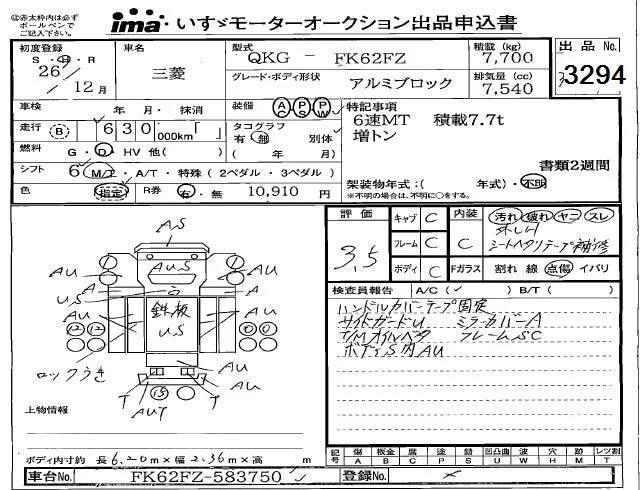 ◎太枠内は必ず
ボールペンで
ご記入下さい。
ima いすゞモーターオークション出品申込書
初度登録
S・H・R
26/12月
車名
三菱
型式
QKG － FK62FZ
グレード・ボディ形状
アルミブロック
積載(kg)
7,700
排気量(cc)
7,540
出品No.
3294
車検
年 月・抹消
装備 AC PS PW
走行 B 630,000km「 」
タコグラフ
有・無 別体
( 年 月)
燃料 G・D・HV 他( )
シフト 6 M/T・A/T・特殊(2ペダル・3ペダル)
色 指定
R券 有・無 10,910 円
特記事項
6速MT 積載7.7t
増トン
書類2週間
架装物年式:( 年式)・不明
※不明の場合は、不明に○をする。
評価
3.5
キャブ C
フレーム C
ボディ C
内装 C
Fガラス
汚れ 破れ ヤニ スレ
シートヘタリテープ補修
割れ 線 点傷 イバリ
検査員報告 A/C(✓) B/T( )
ハンドルカバーテープ固定
サイドガードU ミラーカバーA
T/Mオイルベタ フレームSC
ボディS内AU
AS
AU
AUS
AU
A
A
US
鉄板
US
AU
12
12
0
0
AU
ロックうき
AU
T
15
T
AUT
上物情報
ボディ内寸約 長 6.20m×幅 2.36m×高 m
記号
傷 板金 腐 塗 錆 凹凸曲 波 穴 跡 レンズ割
A B C P S U W H M T
車台No. FK62FZ-583750
登録No.